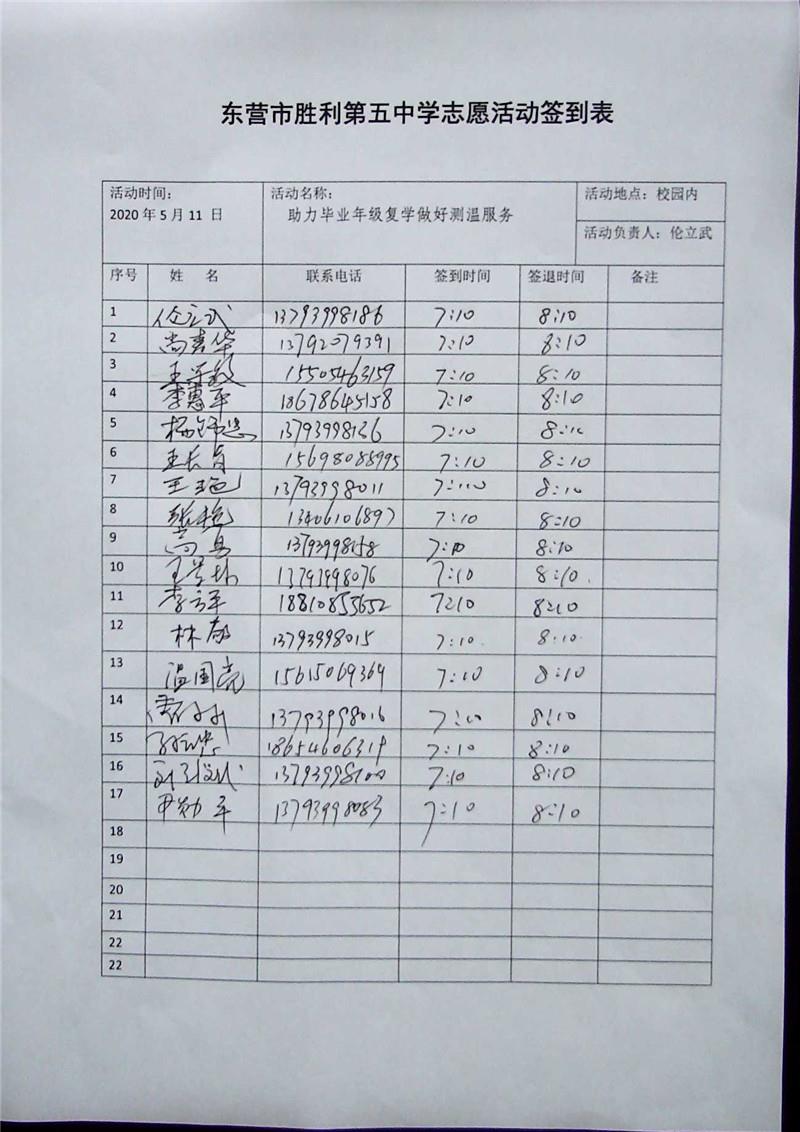 东营市胜利第五中学志愿活动签到表
活动时间: 活动名称: 活动地点：校园内
2020 年 5 月 11 日 助力毕业年级复学做好测温服务
活动负责人：伦立武
序号 姓 名 联系电话 签到时间 签退时间 备注
1 伦立武 13793998186 7:10 8:10
2 尚春华 13792079391 7:10 8:10
3 15505463159 7:10 8:10
4 李惠军 18678645158 7:10 8:10
5 13793998136 7:10 8:10
6 王长自 15698088995 7:10 8:10
7 王艳 13793998011 7:10 8:10
8 张艳 13406106897 7:10 8:10
9 高勇 13793998158 7:10 8:10
10 13793998076 7:10 8:10
11 18810855652 7:10 8:10
12 林敏 13793998015 7:10 8:10
13 温国亮 15615069364 7:10 8:10
14 13793998016 7:10 8:10
15 18654606319 7:10 8:10
16 13793998100 7:10 8:10
17 尹勋军 13793998083 7:10 8:10
18
19
20
21
22
22